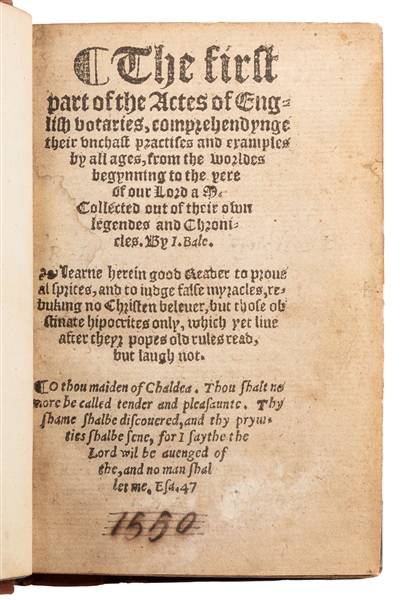 The first
part of the Actes of Eng-
lish votaries, comprehendynge
their vnchast practises and examples
by all ages, from the worldes
begynning to the yere
of our Lord a M.
Collected out of their own
legendes and Chroni-
cles. By I. Bale.
Learne herein good Reader to proue
al sprites, and to iudge false myracles, re-
buking no Christen beleuer, but those ob
stinate hipocrites only, which yet liue
after theyr popes old rules read,
but laugh not.
O thou maiden of Chaldea. Thou shalt no
more be called tender and pleasaunte. Thy
shame shalbe discouered, and thy pryui-
ties shalbe sene, for I saythe the
Lord wil be auenged of
the, and no man shal
let me. Esa. 47
1550